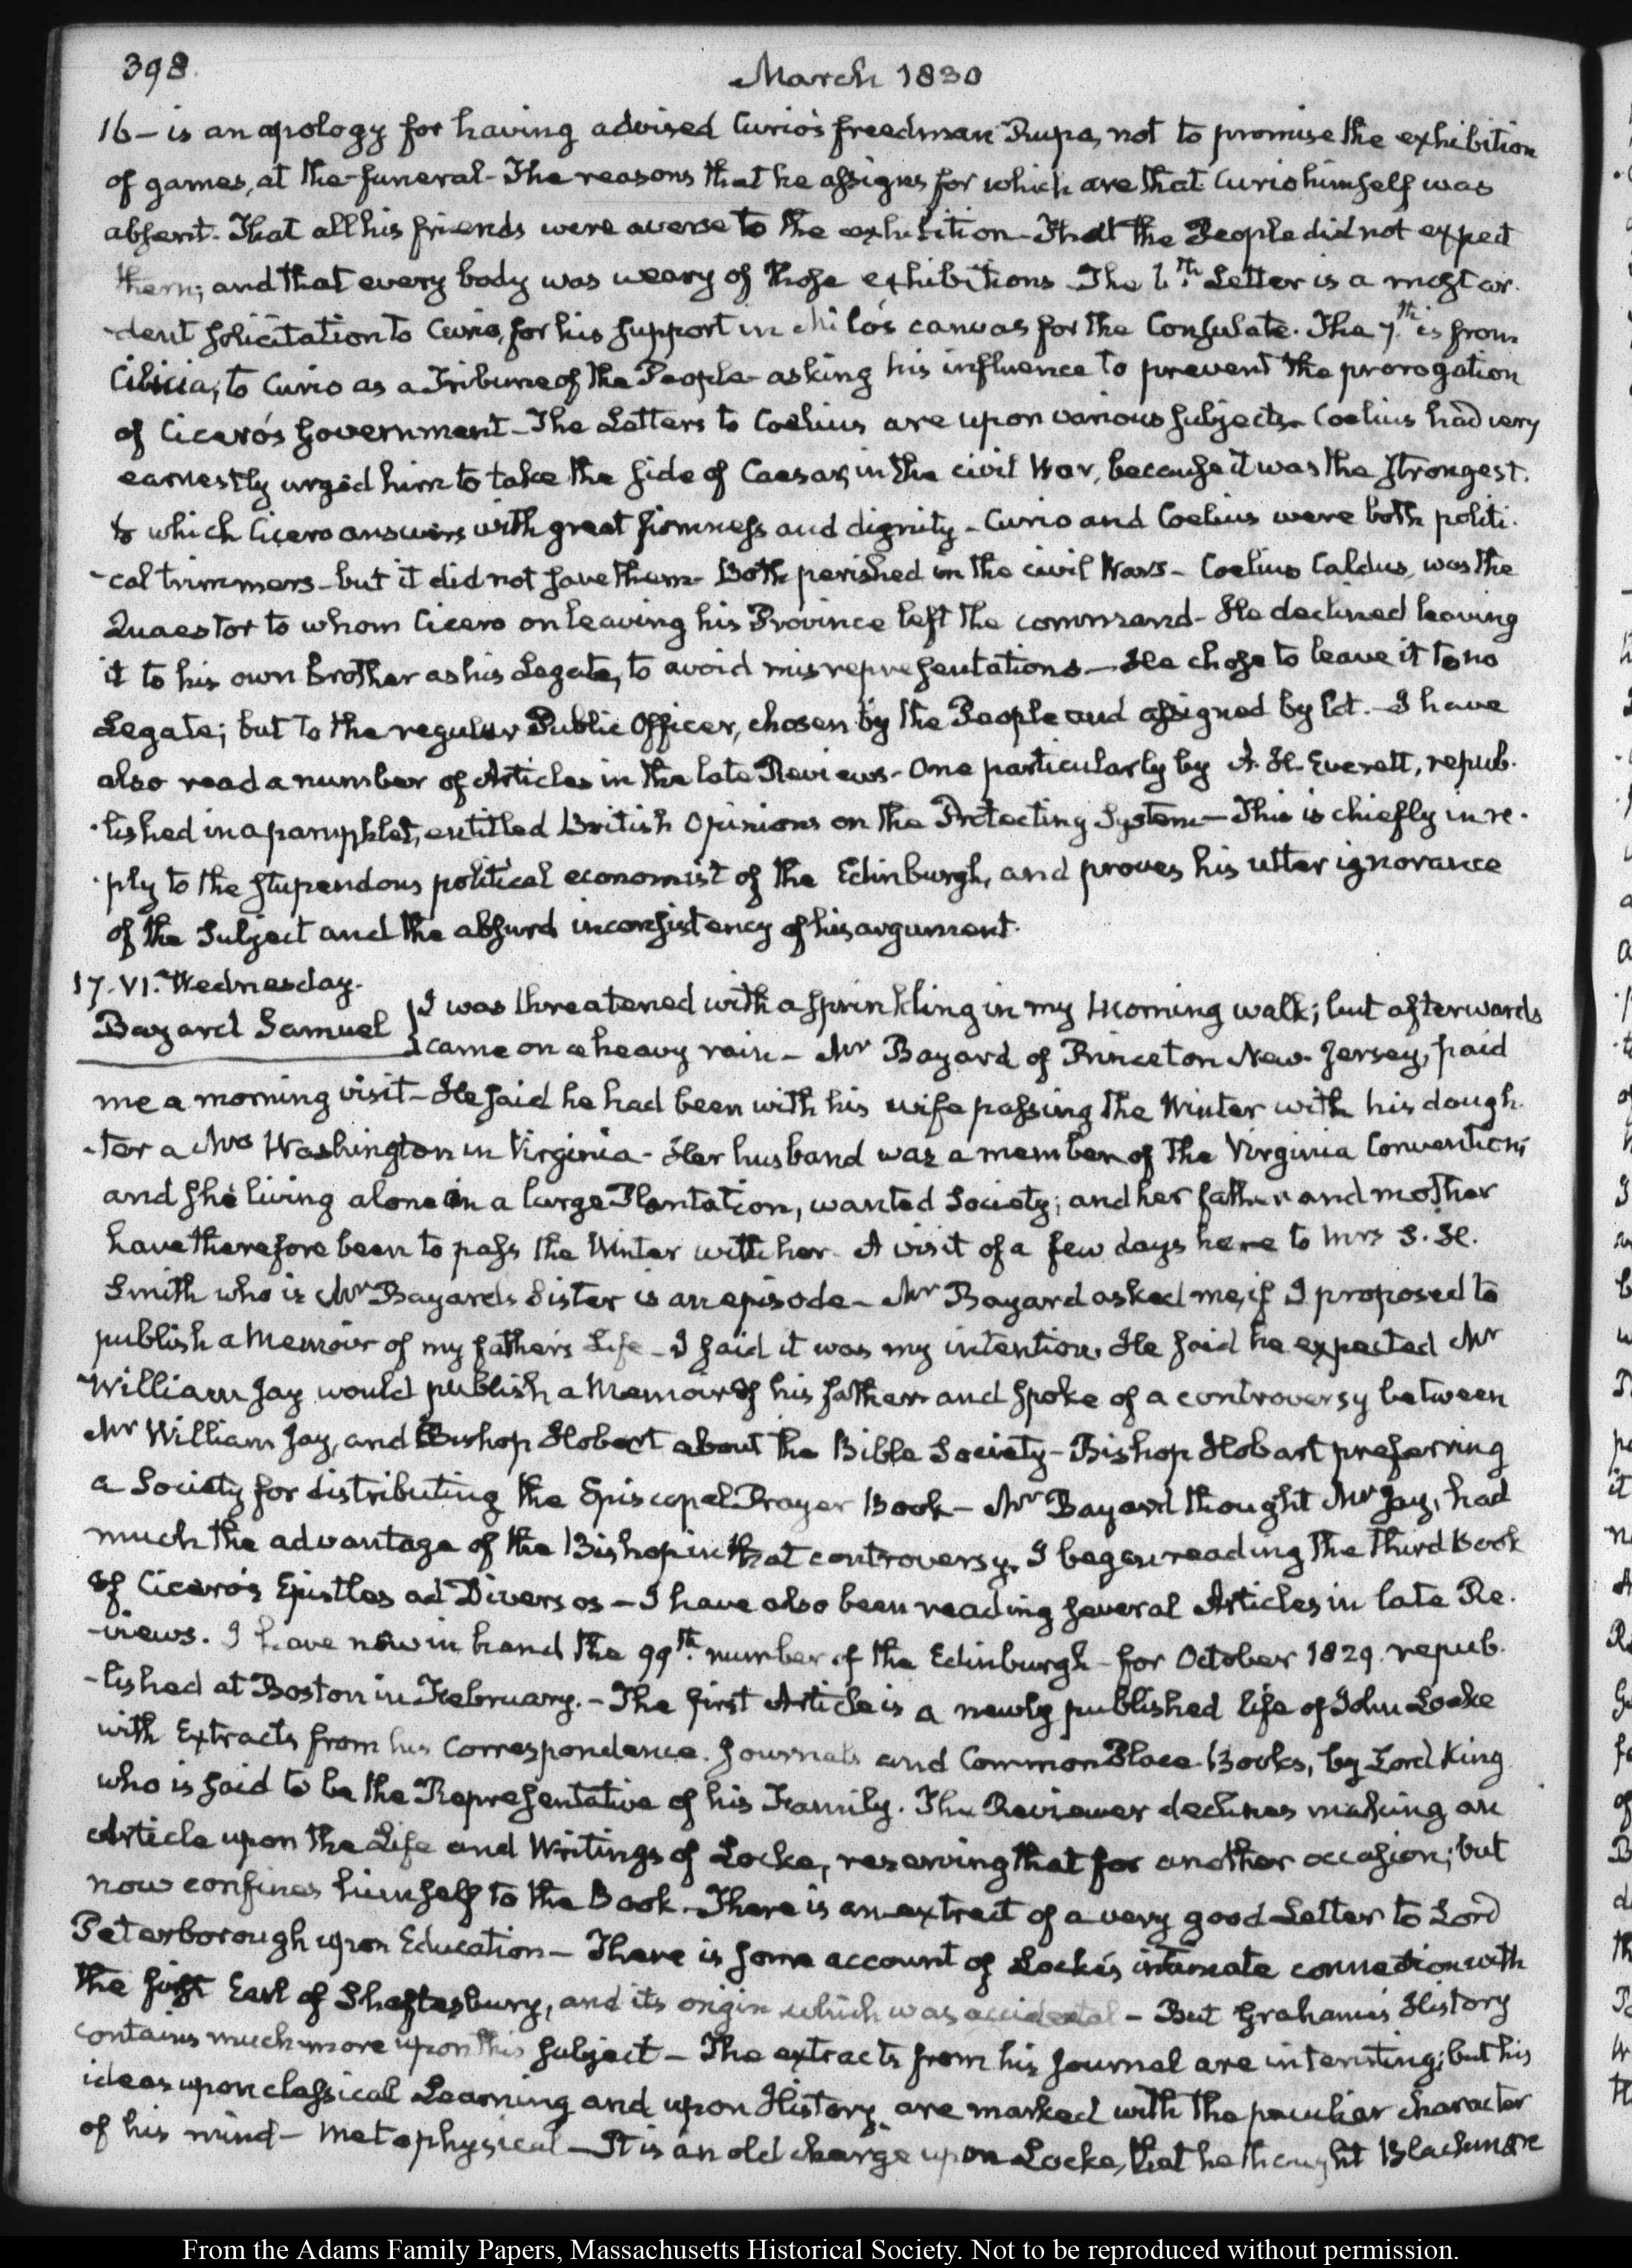 398.
March 1830
16 – is an apology for having advised Curio's freedman Rupa, not to promise the exhibition
of games, at the funeral – The reasons that he assigns for which are that Curio himself was
absent. That all his friends were averse to the exhibition – That the People did not expect
them; and that every body was weary of those exhibitions. The 6.th Letter is a most ar-
-dent solicitation to Curio, for his support in Milo's canvas for the Consulate. The 7.th is from
Cilicia, to Curio as a Tribune of the People – asking his influence to prevent the prorogation
of Cicero's Government – The Letters to Coelius are upon various subjects – Coelius had very
earnestly urged him to take the side of Caesar, in the civil War, because it was the strongest.
to which Cicero answers with great firmness and dignity – Curio and Coelius were both politi-
-cal trimmers – but it did not save them – Both perished in the civil Wars – Coelius Caldus, was the
Quaestor to whom Cicero on leaving his Province left the command – He declined leaving
it to his own Brother as his Legate, to avoid misrepresentations – He chose to leave it to no
Legate; but to the regular Public Officer, chosen by the People and assigned by lot. – I have
also read a number of Articles in the late Reviews – One particularly by A. H. Everett, repub-
-lished in a pamphlet, entitled British Opinions on the Protecting System – This is chiefly in re-
-ply to the stupendous political economist of the Edinburgh, and proves his utter ignorance
of the Subject and the absurd inconsistency of his argument.
17. VI. Wednesday.
Bayard Samuel
I was threatened with a sprinkling in my morning walk; but afterwards
came on a heavy rain – Mr Bayard of Princeton New-Jersey, paid
me a morning visit – He said he had been with his wife passing the Winter with his daugh-
-ter a Mrs Washington in Virginia – Her husband was a member of the Virginia Convention;
and she living alone in a large Plantation, wanted Society; and her father and mother
have therefore been to pass the Winter with her – A visit of a few days here to Mrs S. H.
Smith who is Mr Bayard's Sister is an episode – Mr Bayard asked me, if I proposed to
publish a Memoir of my father's Life – I said it was my intention. He said he expected Mr
William Jay would publish a Memoir of his father and spoke of a controversy between
Mr William Jay, and Bishop Hobart about the Bible Society – Bishop Hobart preferring
a Society for distributing the Episcopal Prayer Book – Mr Bayard thought Mr Jay, had
much the advantage of the Bishop in that controversy. I began reading the third Book
of Cicero's Epistles ad Diversos – I have also been reading several Articles in late Re-
-views. I have now in hand the 99.th number of the Edinburgh – for October 1829. repub-
-lished at Boston in February. – The first Article is a newly published life of John Locke
with Extracts from his Correspondence. Journals and Common Place Books, by Lord King
who is said to be the Representative of his Family. The Reviewer declines making an
Article upon the Life and Writings of Locke, reserving that for another occasion; but
now confines himself to the Book – There is an extract of a very good Letter to Lord
Peterborough upon Education – There is some account of Locke's intimate connection with
the first Earl of Shaftesbury, and its origin which was accidental – But Graham's History
contains much more upon this subject – The extracts from his Journal are interesting; but his
ideas upon classical Learning and upon History are marked with the peculiar character
of his mind – Metaphysical – It is an old charge upon Locke, that he thought Blackmore
From the Adams Family Papers, Massachusetts Historical Society. Not to be reproduced without permission.